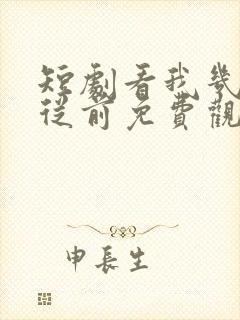 短劇看我幾
從前免費觀
申長生